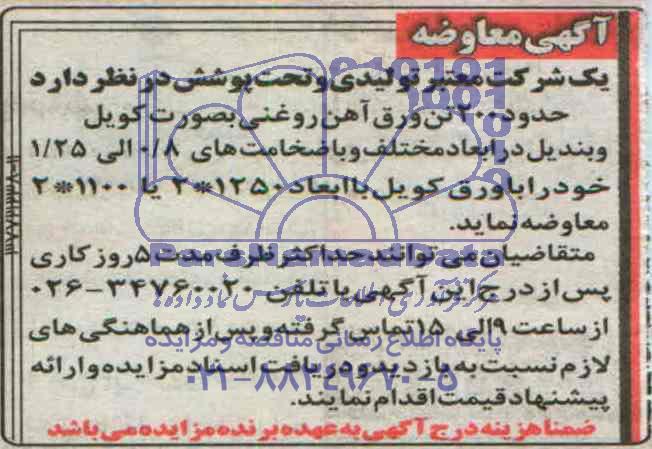 آگهی معاوضه
یک شرکت معتبر تولیدی و تحت پوشش در نظر دارد
حدود ۲۰۰ تن ورق آهن روغنی بصورت کویل
وبندیل در ابعاد مختلف و با ضخامت های ۰/۸ الی ۱/۲۵
خود را با ورق کویل با ابعاد ۱۲۵۰*۲ یا ۱۱۰۰*۲
معاوضه نماید.
متقاضیان می توانند حداکثر ظرف مدت ۵ روز کاری
پس از درج این آگهی با تلفن ۳۴۷۶۰۰۲۰-۰۲۶
از ساعت ۹ الی ۱۵ تماس گرفته و پس از هماهنگی های
لازم نسبت به بازدید و دریافت اسناد مزایده و ارائه
پیشنهاد قیمت اقدام نمایند.
ضمنا هزینه درج آگهی به عهده برنده مزایده می باشد
ParsNamadData
مرکز فرآوری اطلاعات پارس نماد داده ها
پایگاه اطلاع رسانی مناقصه و مزایده
۰۲۱-۸۸۳۴۹۶۷۰-۵